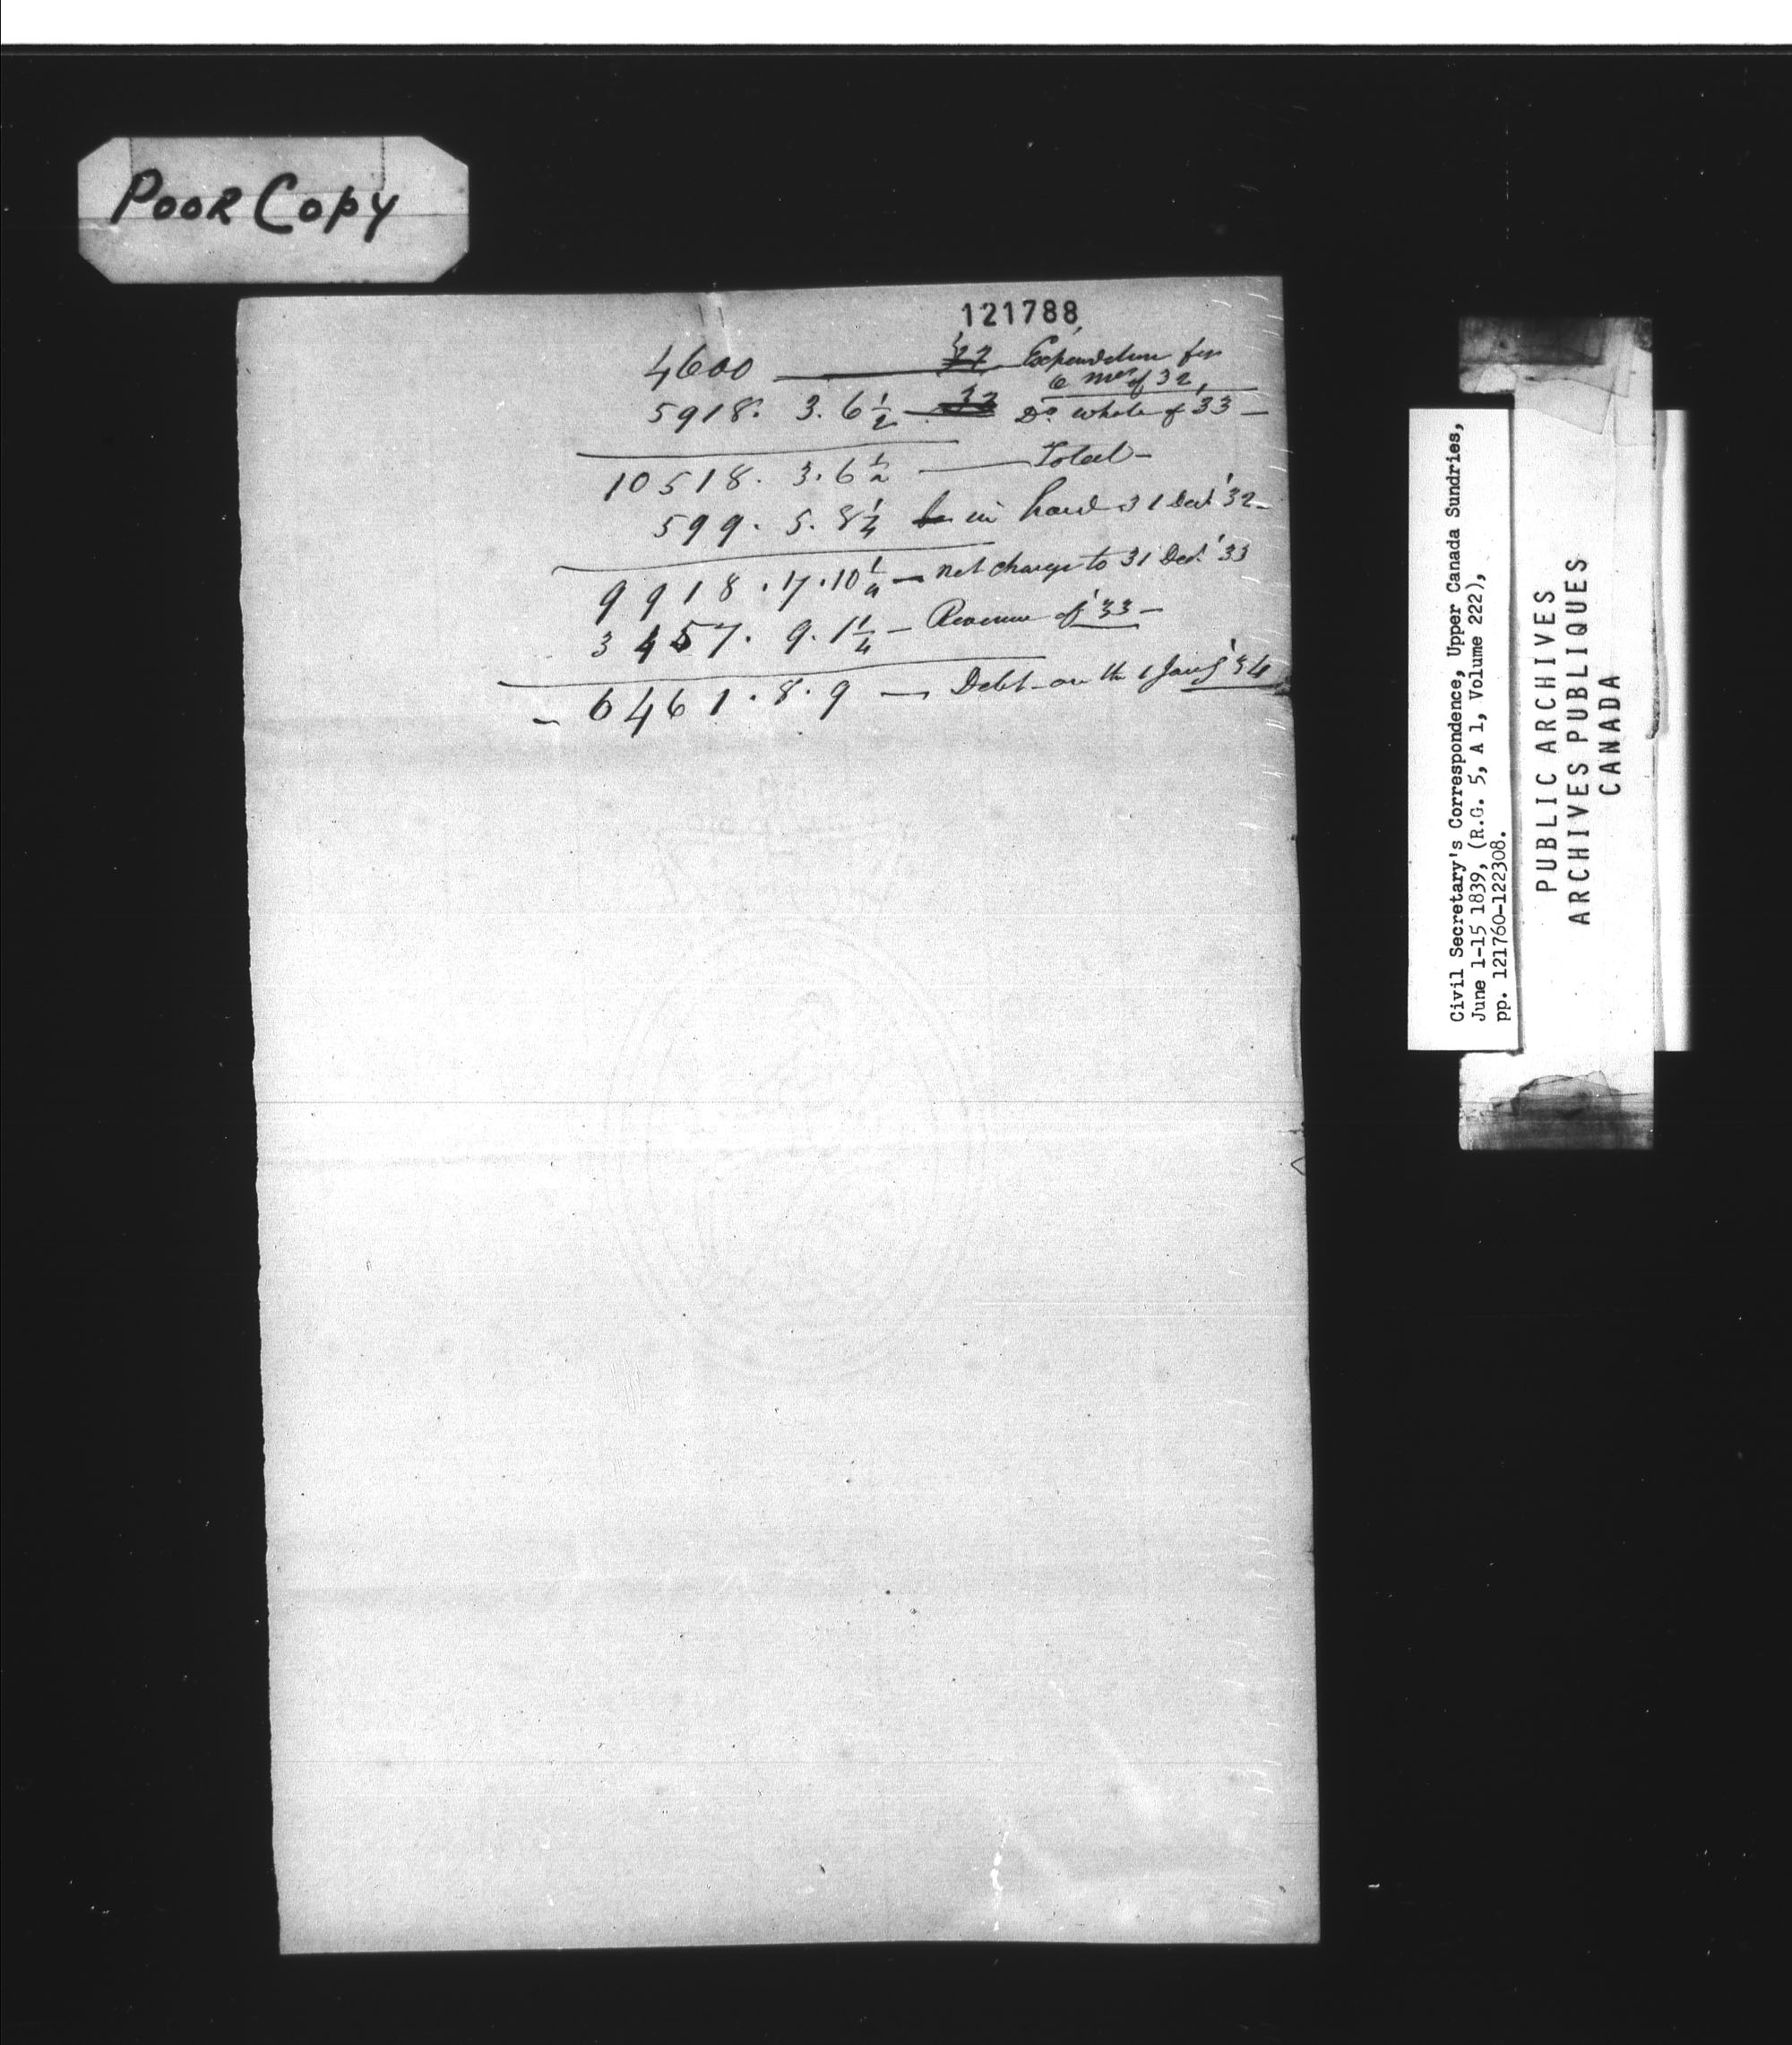 Poor Copy
121788
4600 — Expenditure for
6 mos of 32,
5918. 3. 6 1/2 — Do. whole of '33 —
10518. 3. 6 1/2 — Total —
599. 5. 8 1/4 in hand 31 Decr '32 —
9918. 17. 10 1/4 — net charge to 31 Decr '33
3457. 9. 1 1/4 — Revenue of '33 —
6461. 8. 9 — Debt on the 1 Jany '34
Civil Secretary's Correspondence, Upper Canada Sundries,
June 1-15 1839, (R.G. 5, A 1, Volume 222),
pp. 121760-122308.
PUBLIC ARCHIVES
ARCHIVES PUBLIQUES
CANADA